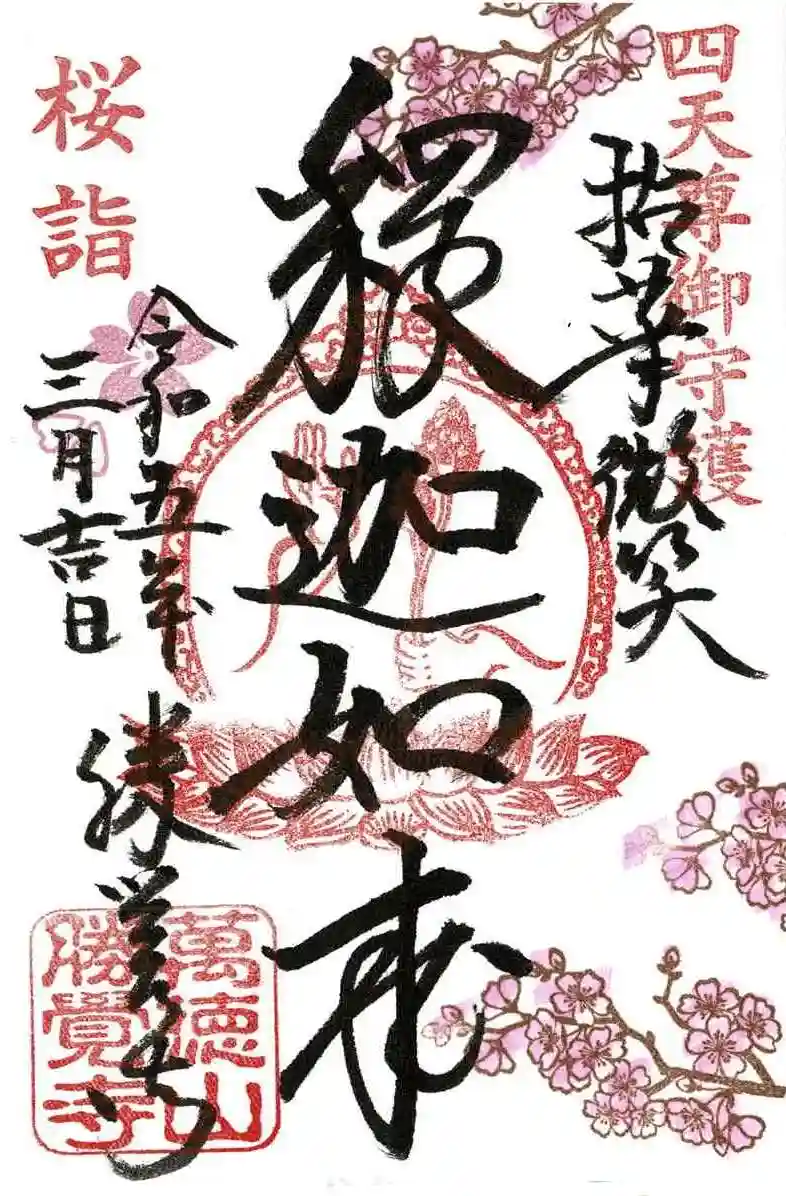 四天尊御守護
拈華微笑
釈迦如来
桜詣
令和五年
三月吉日
勝覚寺
萬徳山
勝覺寺